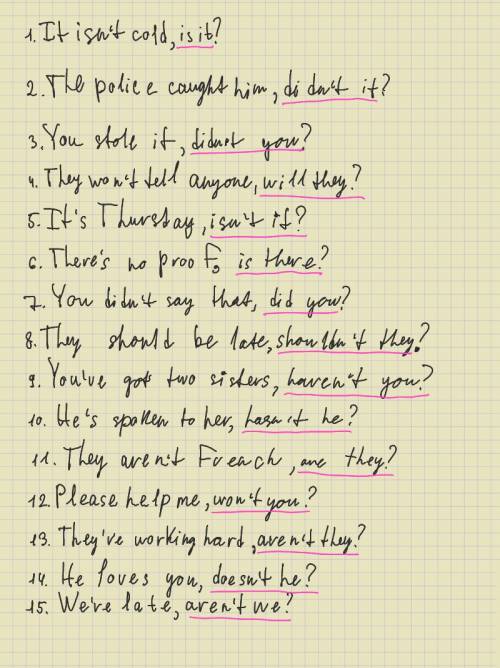 1. It isn't cold, is it?
2. The police caught him, didn't it?
3. You stole it, didn't you?
4. They won't tell anyone, will they?
5. It's Thurstay, isn't it?
6. There's no proof, is there?
7. You didn't say that, did you?
8. They should be late, shouldn't they?
9. You've got two sisters, haven't you?
10. He's spoken to her, hasn't he?
11. They aren't French, are they?
12. Please help me, won't you?
13. They've working hard, aren't they?
14. He loves you, doesn't he?
15. We're late, aren't we?